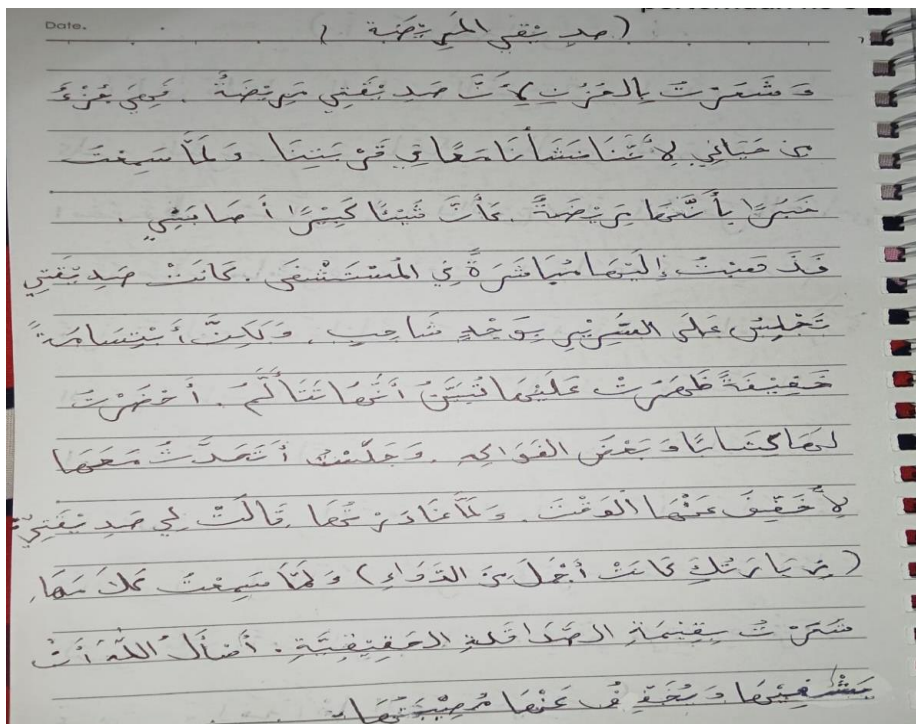 Date.
(صديقي المريضة)
وَشَعَرْتُ بِالحُزْنِ لِأَنَّ صَدِيْقَتِي مَرِيْضَةٌ. فَهِيَ جُزْءٌ
مِنْ حَيَاتِي لِأَنَّنَا نَشَأْنَا مَعًا فِي قَرْيَتِنَا. وَلَمَّا سَمِعْتُ
خَبَرًا بِأَنَّهَا مَرِيْضَةٌ كَأَنَّ شَيْئًا كَبِيْرًا أَصَابَنِي.
فَذَهَبْتُ إِلَيْهَا مُبَاشَرَةً فِي المُسْتَشْفَى. كَانَتْ صَدِيْقَتِي
تَجْلِسُ عَلَى السَّرِيْرِ بِوَجْهٍ شَاحِبٍ. وَلَكِنَّ أبْتِسَامَةً
خَفِيْفَةً ظَهَرَتْ عَلَيْهَا تُبَيِّنُ أَنَّهَا تَتَأَلَّمُ. أَحْضَرْتُ
لَهَا كِتَابًا وَبَعْضَ الفَوَاكِهِ. وَجَلَسْتُ أَتَحَدَّثُ مَعَهَا
لِأُخَفِّفَ عَنْهَا الْوَقْتَ. وَلَمَّا غَادَرْتُهَا قَالَتْ لِي صَدِيْقَتِيْ:
(زِيَارَتُكِ كَانَتْ أَجْمَلَ مِنَ الدَّوَاءِ) وَلَمَّا سَمِعْتُ كَلَامَهَا،
شَعَرْتُ بِقِيْمَةِ الصَّدَاقَةِ الحَقِيْقِيَّةِ. أَسْأَلُ اللّٰهَ أَنْ
يَشْفِيْهَا وَيُخَفِّفُ عَنْهَا مُصِيْبَتَهَا.